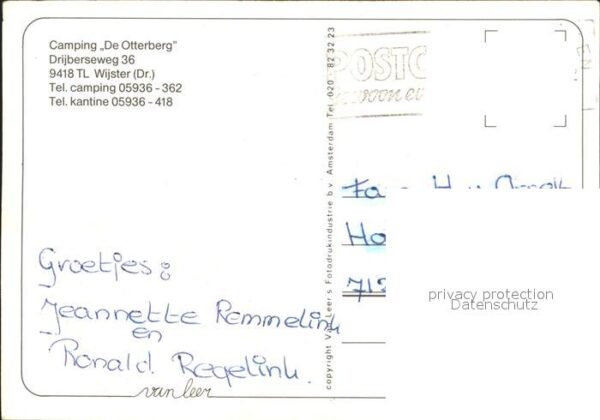 Camping „De Otterberg”
Drijberseweg 36
9418 TL Wijster (Dr.)
Tel. camping 05936 - 362
Tel. kantine 05936 - 418
POSTC
Fa
Ho
712
Groetjes:
Jeannette Remmelink
en
Ronald Regelink.
van leer
copyright Van Leer's Fotodrukindustrie b.v. Amsterdam Tel. 020 - 82 32 23
privacy protection
Datenschutz